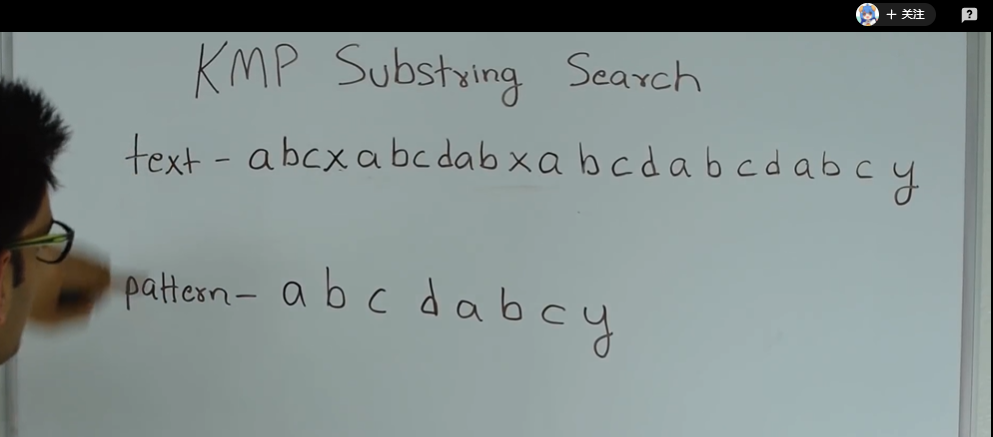 + 关注
?
KMP Substring Search
text - abcxabcdabxabcdabcdabcy
pattern - abcdabcy